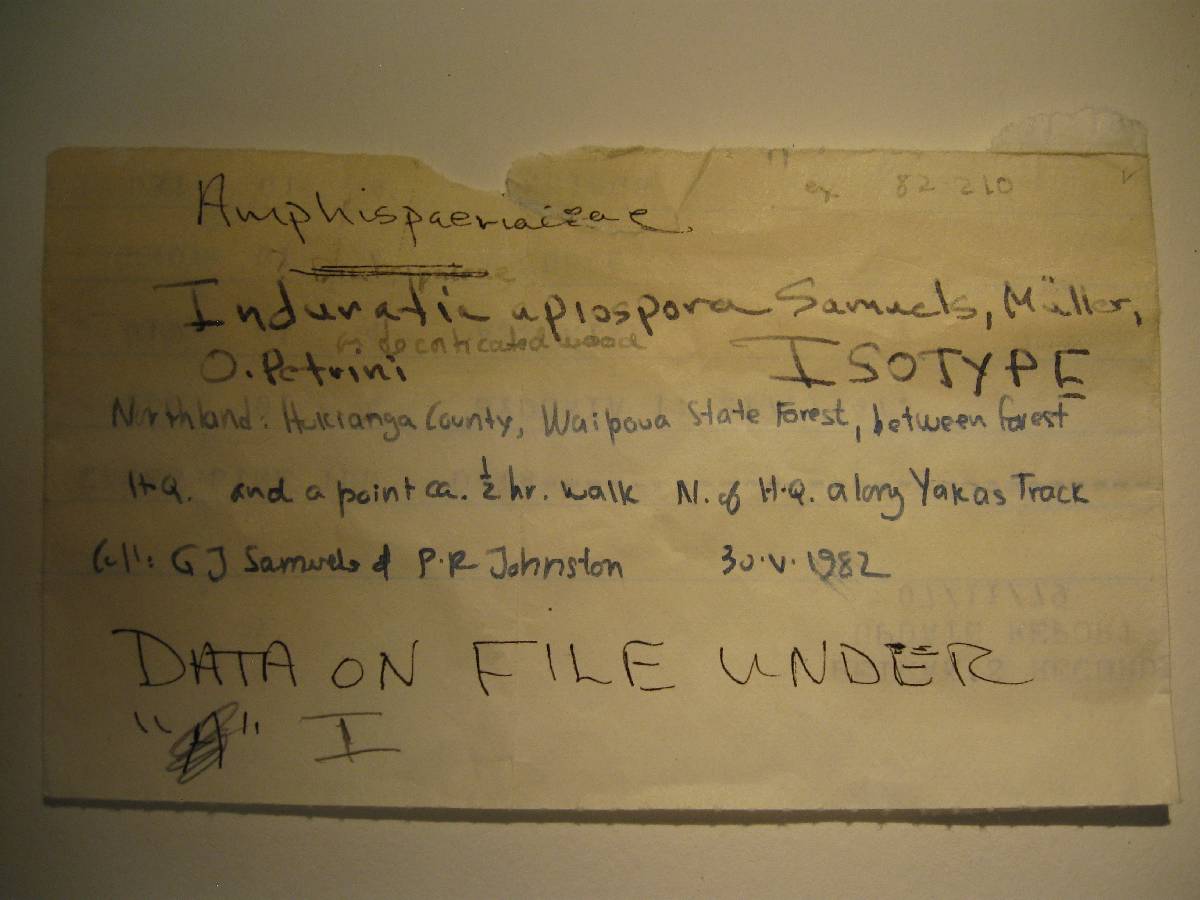 ex 82 210
Amphispaeriaceae
Induratia apiospora Samuels, Müller,
on decorticated wood
O. Petrini ISOTYPE
Northland: Hokianga County, Waipoua State Forest, between forest
H.Q. and a point ca. ½ hr. walk N. of H.Q. along Yakas Track
Coll: G J Samuels & P.R Johnston 30.V.1982
DATA ON FILE UNDER
"A" I